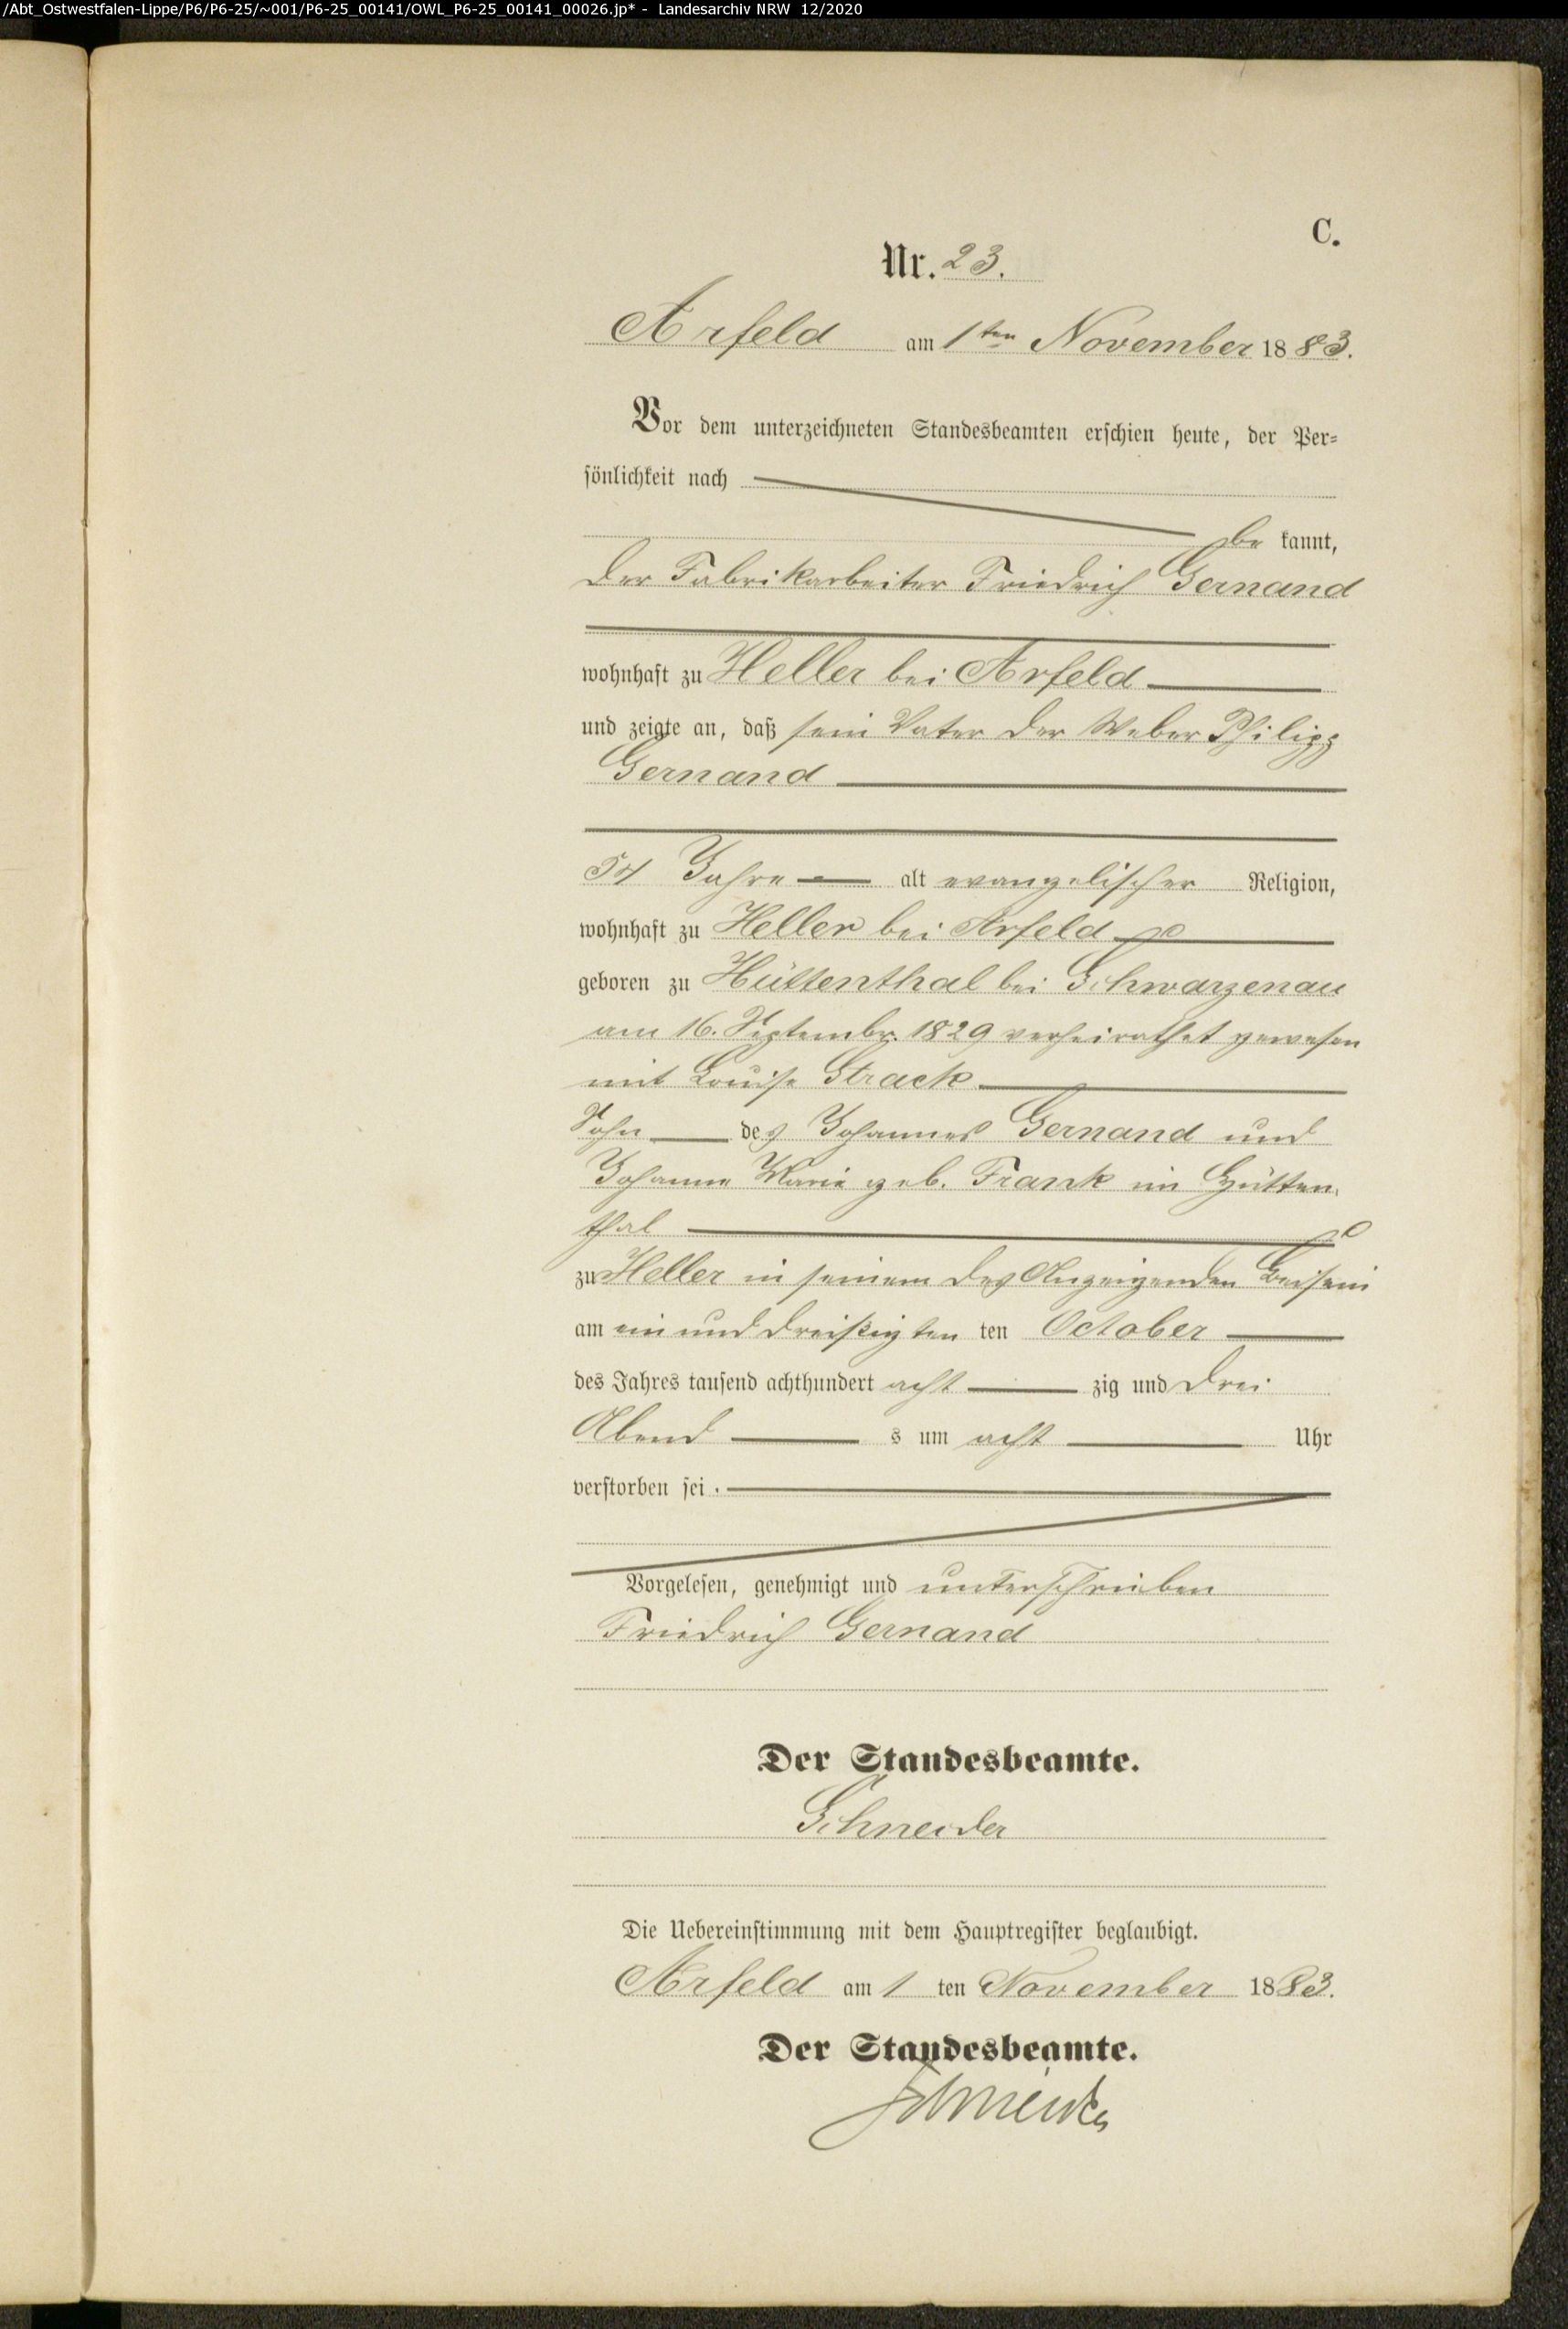 /Abt_Ostwestfalen-Lippe/P6/P6-25/~001/P6-25_00141/OWL_P6-25_00141_00026.jp* - Landesarchiv NRW 12/2020
C.
Nr. 23.
Arfeld am 1ten November 1883.
Vor dem unterzeichneten Standesbeamten erschien heute, der Per-
sönlichkeit nach
be kannt,
der Fabrikarbeiter Friedrich Gernand
wohnhaft zu Heller bei Arfeld
und zeigte an, daß sein Vater der Weber Philipp
Gernand
54 Jahre alt evangelischer Religion,
wohnhaft zu Heller bei Arfeld
geboren zu Hüttenthal bei Schwarzenau
am 16. Septembr. 1829 verheirathet gewesen
mit Louise Strack
Sohn des Johannes Gernand und
Johanne Marie geb. Frank im Hütten-
thal
zu Heller in seinem des Anzeigenden Beisein
am ein und dreißigten ten October
des Jahres tausend achthundert acht zig und drei
Abend s um acht Uhr
verstorben sei.
Vorgelesen, genehmigt und unterschrieben
Friedrich Gernand
Der Standesbeamte.
Schneider
Die Uebereinstimmung mit dem Hauptregister beglaubigt.
Arfeld am 1 ten November 1883.
Der Standesbeamte.
Schneider